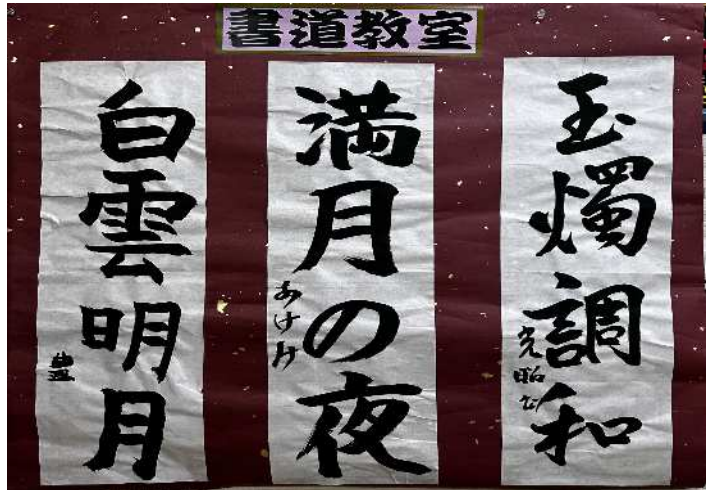 書道教室
玉燭調和
光昭書
満月の夜
あけみ
白雲明月